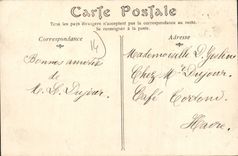 Carte Postale
Tous les pays étrangers n'acceptent pas la correspondance au recto.
Se renseigner à la poste.
Correspondance
Adresse
14
Bonnes amitiés
de
Mademoiselle D.
Chez Mr Dujour
Café
Havre